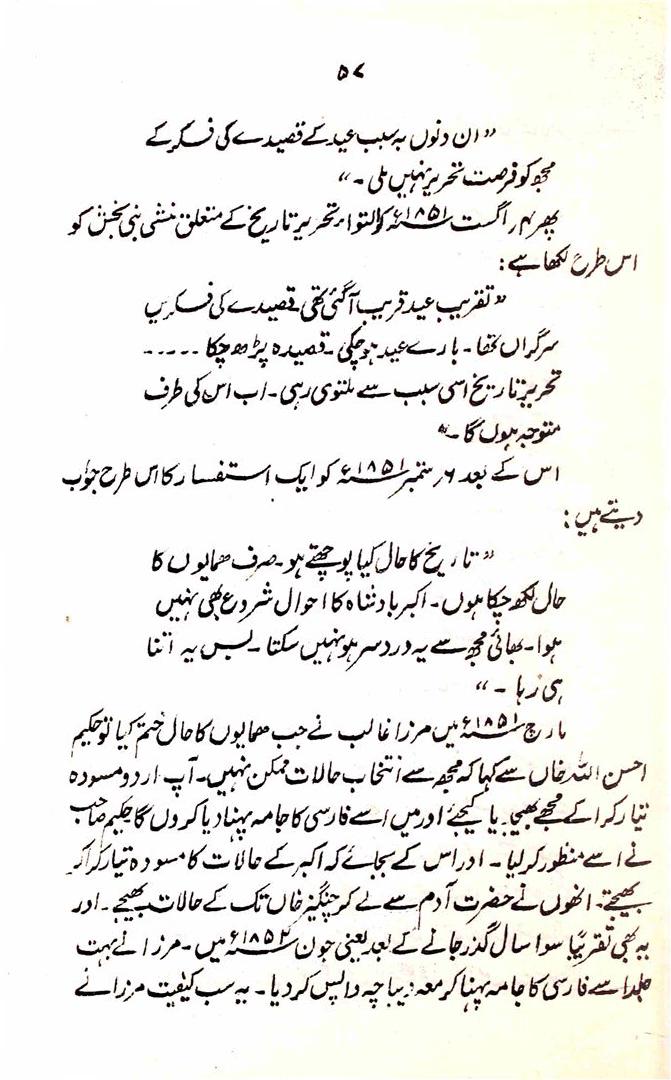 ۵۷
"ان دنوں بہ سبب عید کے قصیدے کی فکر کے
مجھ کو فرصت تحریر نہیں ملی۔"
پھر ۴ر اگست ۱۸۵۱ء کو التواء تحریر تاریخ کے متعلق منشی نبی بخش کو
اس طرح لکھا ہے:
"تقریب عید قریب آگئی تھی قصیدے کی فکر میں
سرگراں تھا۔ بارے عید ہو چکی۔ قصیدہ پڑھ چکا ۔۔۔۔۔
تحریر تاریخ اسی سبب سے ملتوی رہی۔ اب اس کی طرف
متوجہ ہوں گا۔"
اس کے بعد ۶ر ستمبر ۱۸۵۱ء کو ایک استفسار کا اس طرح جواب
دیتے ہیں:
"تاریخ کا حال کیا پوچھتے ہو۔ صرف ہمایوں کا
حال لکھ چکا ہوں۔ اکبر بادشاہ کا احوال شروع بھی نہیں
ہوا۔ بھائی مجھ سے یہ درد سر ہو نہیں سکتا۔ بس یہ اتنا
ہی رہا۔"
مارچ ۱۸۵۱ء میں مرزا غالب نے جب ہمایوں کا حال ختم کیا تو حکیم
احسن اللہ خاں سے کہا کہ مجھ سے انتخاب حالات ممکن نہیں۔ آپ اردو مسودہ
تیار کرا کے مجھے بھیجدیا کیجئے اور میں اسے فارسی کا جامہ پہنا دیا کروں گا حکیم صاحب
نے اسے منظور کر لیا۔ اور اس کے بجائے کہ اکبر کے حالات کا مسودہ تیار کرا کر
بھیجتے۔ انھوں نے حضرت آدم سے لے کر چنگیز خاں تک کے حالات بھیجے۔ اور
یہ بھی تقریبًا سوا سال گذر جانے کے بعد یعنی جون ۱۸۵۲ء میں۔ مرزا نے بہت
جلد اسے فارسی کا جامہ پہنا کر معہ دیباچہ واپس کر دیا۔ یہ سب کیفیت مرزا نے